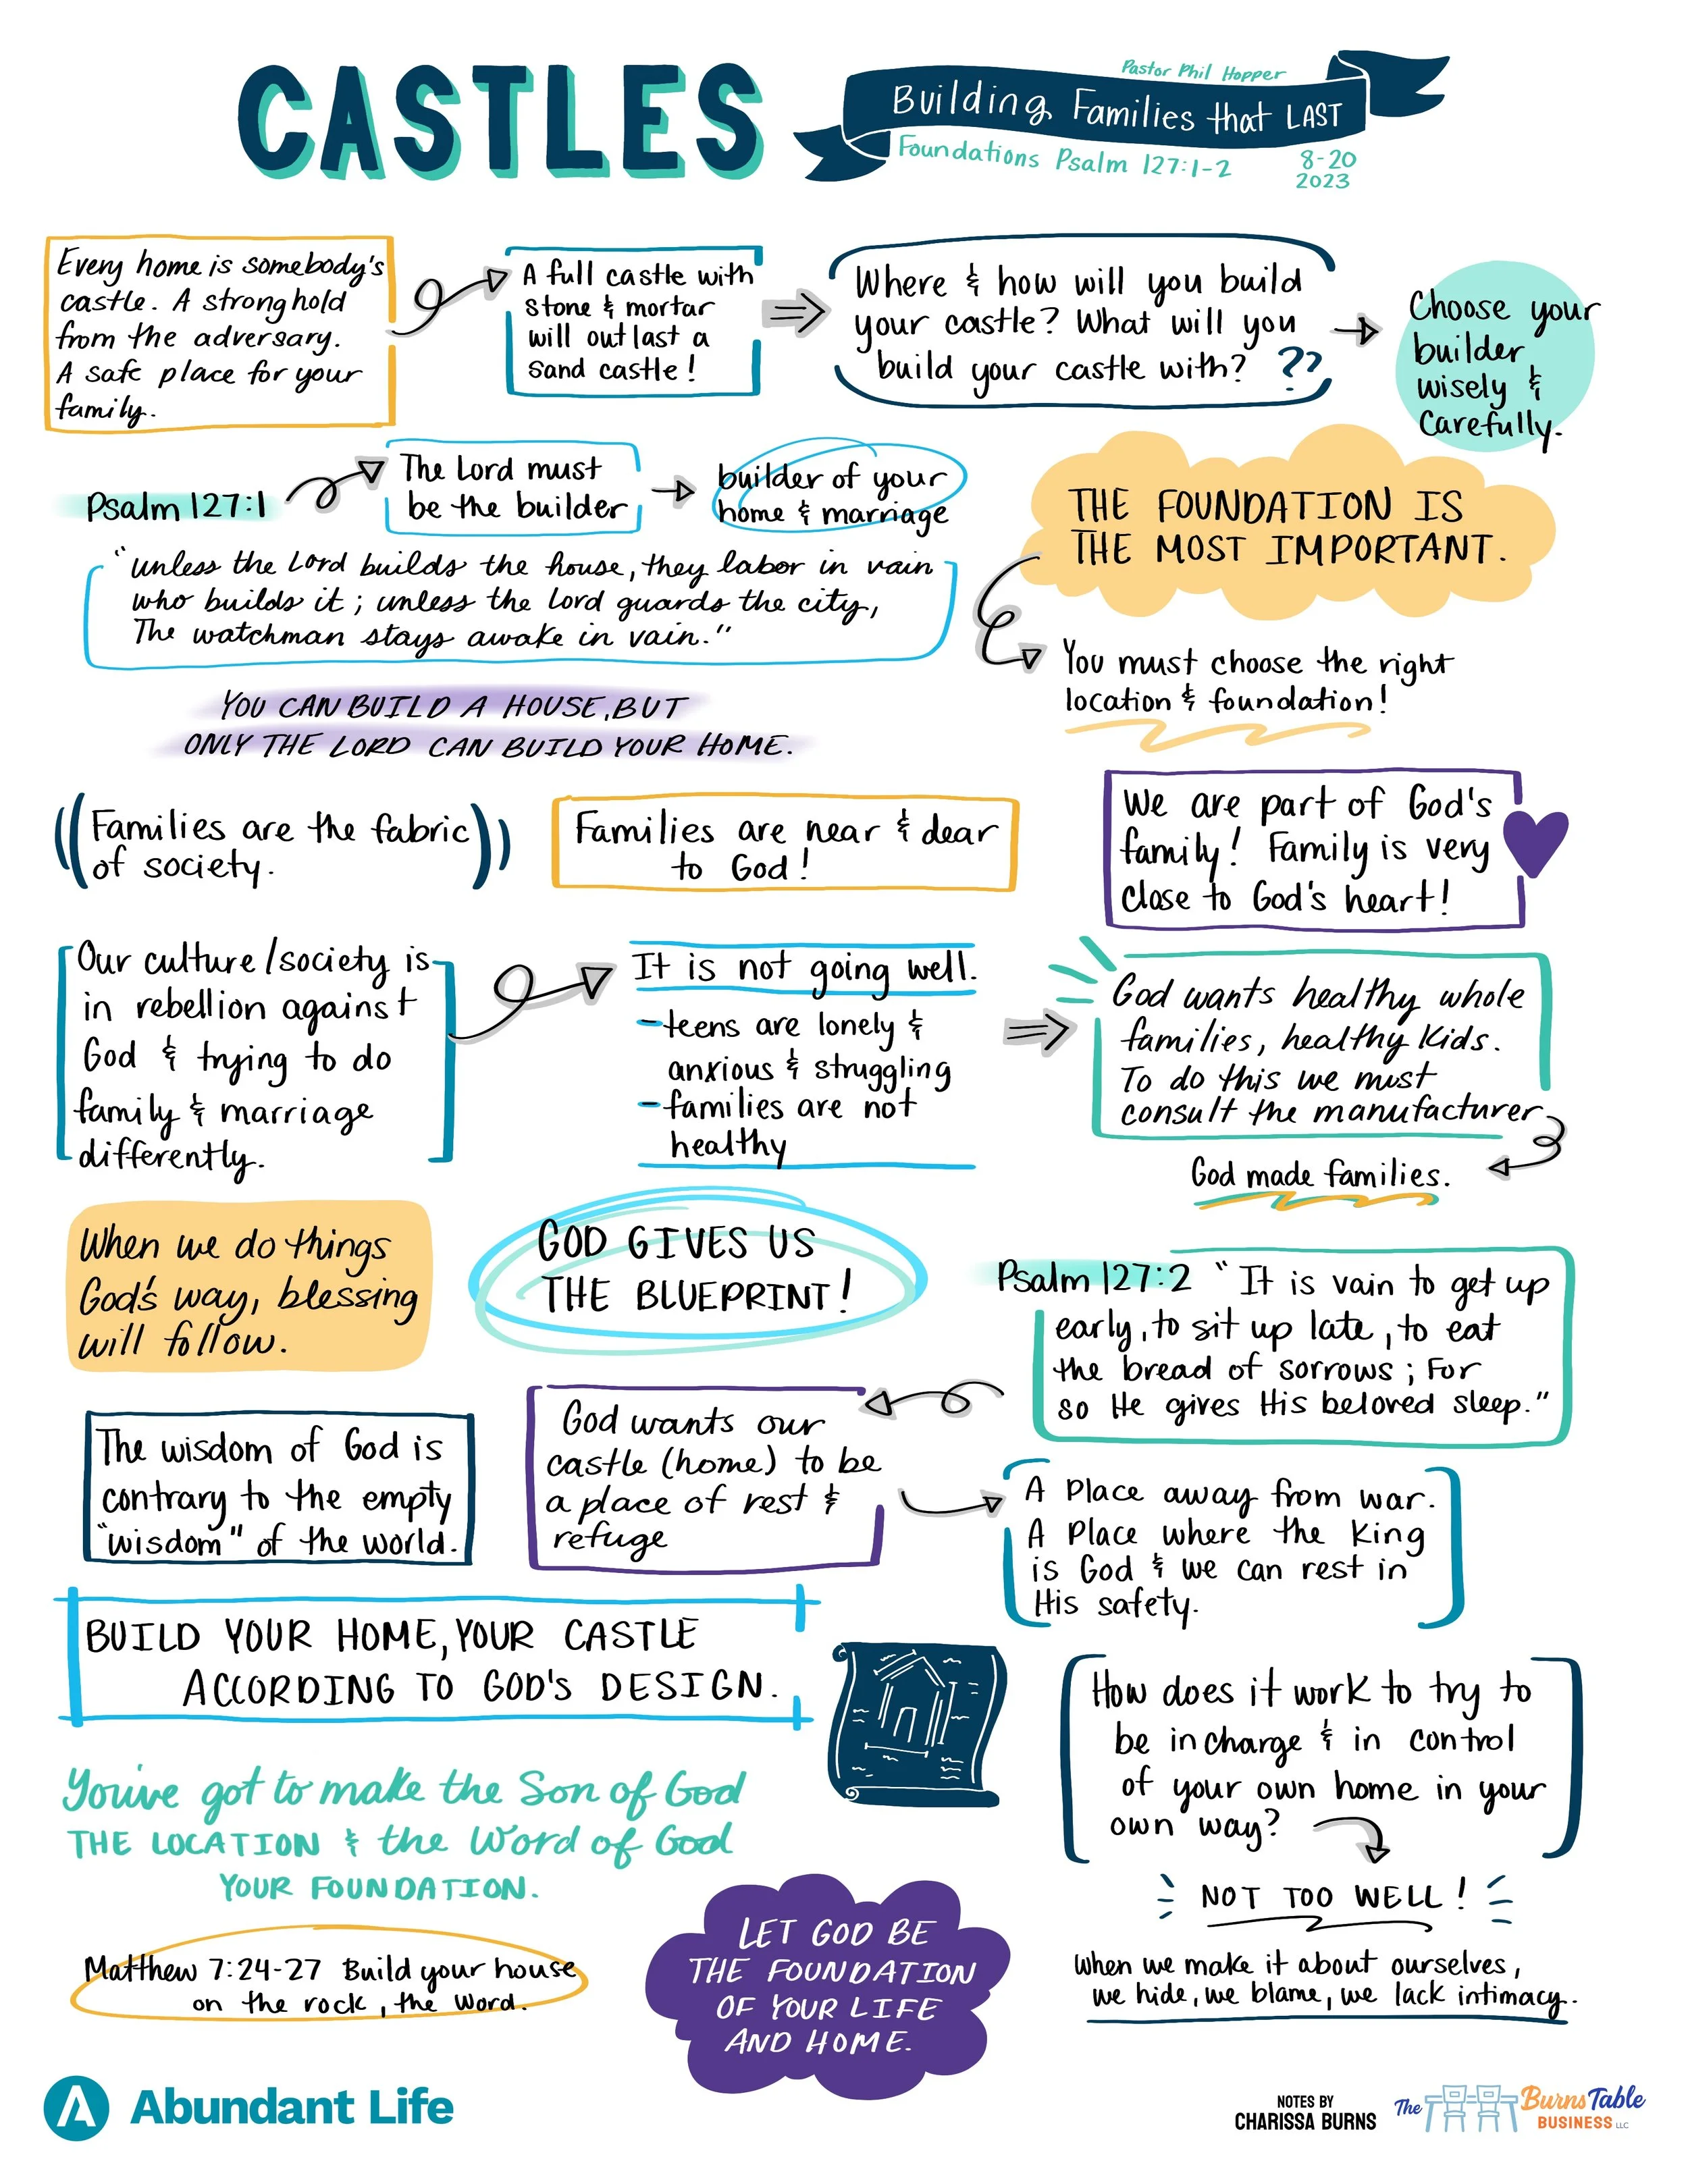 CASTLES
Pastor Phil Hopper
Building Families that LAST
Foundations Psalm 127:1-2
8-20
2023
Every home is somebody's
castle. A stronghold
from the adversary.
A safe place for your
family.
A full castle with
stone & mortar
will outlast a
sand castle!
Where & how will you build
your castle? What will you
build your castle with? ??
Choose your
builder
wisely &
carefully.
Psalm 127:1
The Lord must
be the builder
builder of your
home & marriage
"unless the Lord builds the house, they labor in vain
who builds it; unless the Lord guards the city,
The watchman stays awake in vain."
THE FOUNDATION IS
THE MOST IMPORTANT.
You must choose the right
location & foundation!
YOU CAN BUILD A HOUSE, BUT
ONLY THE LORD CAN BUILD YOUR HOME.
Families are the fabric
of society.
Families are near & dear
to God!
We are part of God's
family! Family is very
close to God's heart!
Our culture/society is
in rebellion against
God & trying to do
family & marriage
differently.
It is not going well.
-teens are lonely &
anxious & struggling
-families are not
healthy
God wants healthy whole
families, healthy kids.
To do this we must
consult the manufacturer
God made families.
When we do things
God's way, blessing
will follow.
GOD GIVES US
THE BLUEPRINT!
Psalm 127:2 "It is vain to get up
early, to sit up late, to eat
the bread of sorrows; For
so He gives His beloved sleep."
The wisdom of God is
contrary to the empty
"wisdom" of the world.
God wants our
castle (home) to be
a place of rest &
refuge
A Place away from war.
A Place where the King
is God & we can rest in
His safety.
BUILD YOUR HOME, YOUR CASTLE
ACCORDING TO GOD'S DESIGN.
How does it work to try to
be in charge & in control
of your own home in your
own way?
NOT TOO WELL!
When we make it about ourselves,
we hide, we blame, we lack intimacy.
You've got to make the Son of God
THE LOCATION & the Word of God
YOUR FOUNDATION.
Matthew 7:24-27 Build your house
on the rock, the Word.
LET GOD BE
THE FOUNDATION
OF YOUR LIFE
AND HOME.
Abundant Life
NOTES BY
CHARISSA BURNS
The Burns Table
BUSINESS LLC